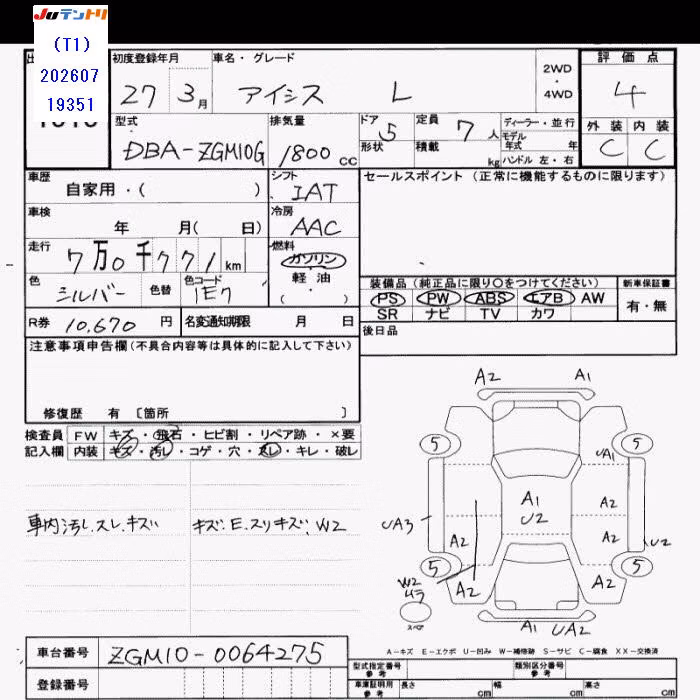 Juテントリ
(T1)
202607
19351
初度登録年月
27 3月
車名・グレード
アイシス L
2WD
・
4WD
評価点
4
外装 内装
C C
型式
DBA-ZGM10G
排気量
1800 cc
ドア 5
形状
定員 7 人
積載 kg
ディーラー・並行
モデル
年式 年
ハンドル 左・右
車歴
自家用・( )
シフト
IAT
車検
年 月( 日)
冷房
AAC
走行
7万0千771km
燃料
ガソリン
・
軽油
( )
色
シルバー
色替
色コード
1E7
R券 10,670 円
名変通知期限 月 日
セールスポイント(正常に機能するものに限ります)
装備品(純正品に限り○をつけてください)
PS PW ABS エアB AW
SR ナビ TV カワ
新車保証書
有・無
後日品
注意事項申告欄(不具合内容等は具体的に記入して下さい)
修復歴 有 〔箇所 〕
検査員
記入欄
FW キズ・飛石・ヒビ割・リペア跡・×要
内装 キズ・汚レ・コゲ・穴・スレ・キレ・破レ
車内汚レ.スレ.キズ
キズ.E.スリキズ,W2
A2 A1
5 5
UA1
A1
U2
A2
UA3
A2
A2
U2
5 5
A2
A2
W2
ムラ
スペア
A1 UA2
A-キズ E-エクボ U-凹み W-補修跡 S-サビ C-腐食 XX-交換済
車台番号 ZGM10-0064275
登録番号
型式指定番号
参考
類別区分番号
参考
車庫証明用
参考
長さ cm
幅 cm
高さ cm